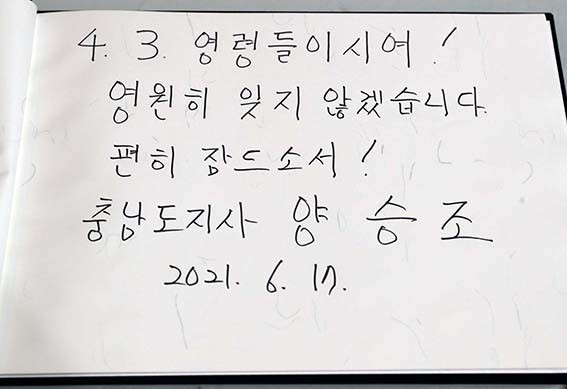 4. 3. 영령들이시여!
영원히 잊지 않겠습니다.
편히 잠드소서!
충남도지사 양승조
2021. 6. 17.